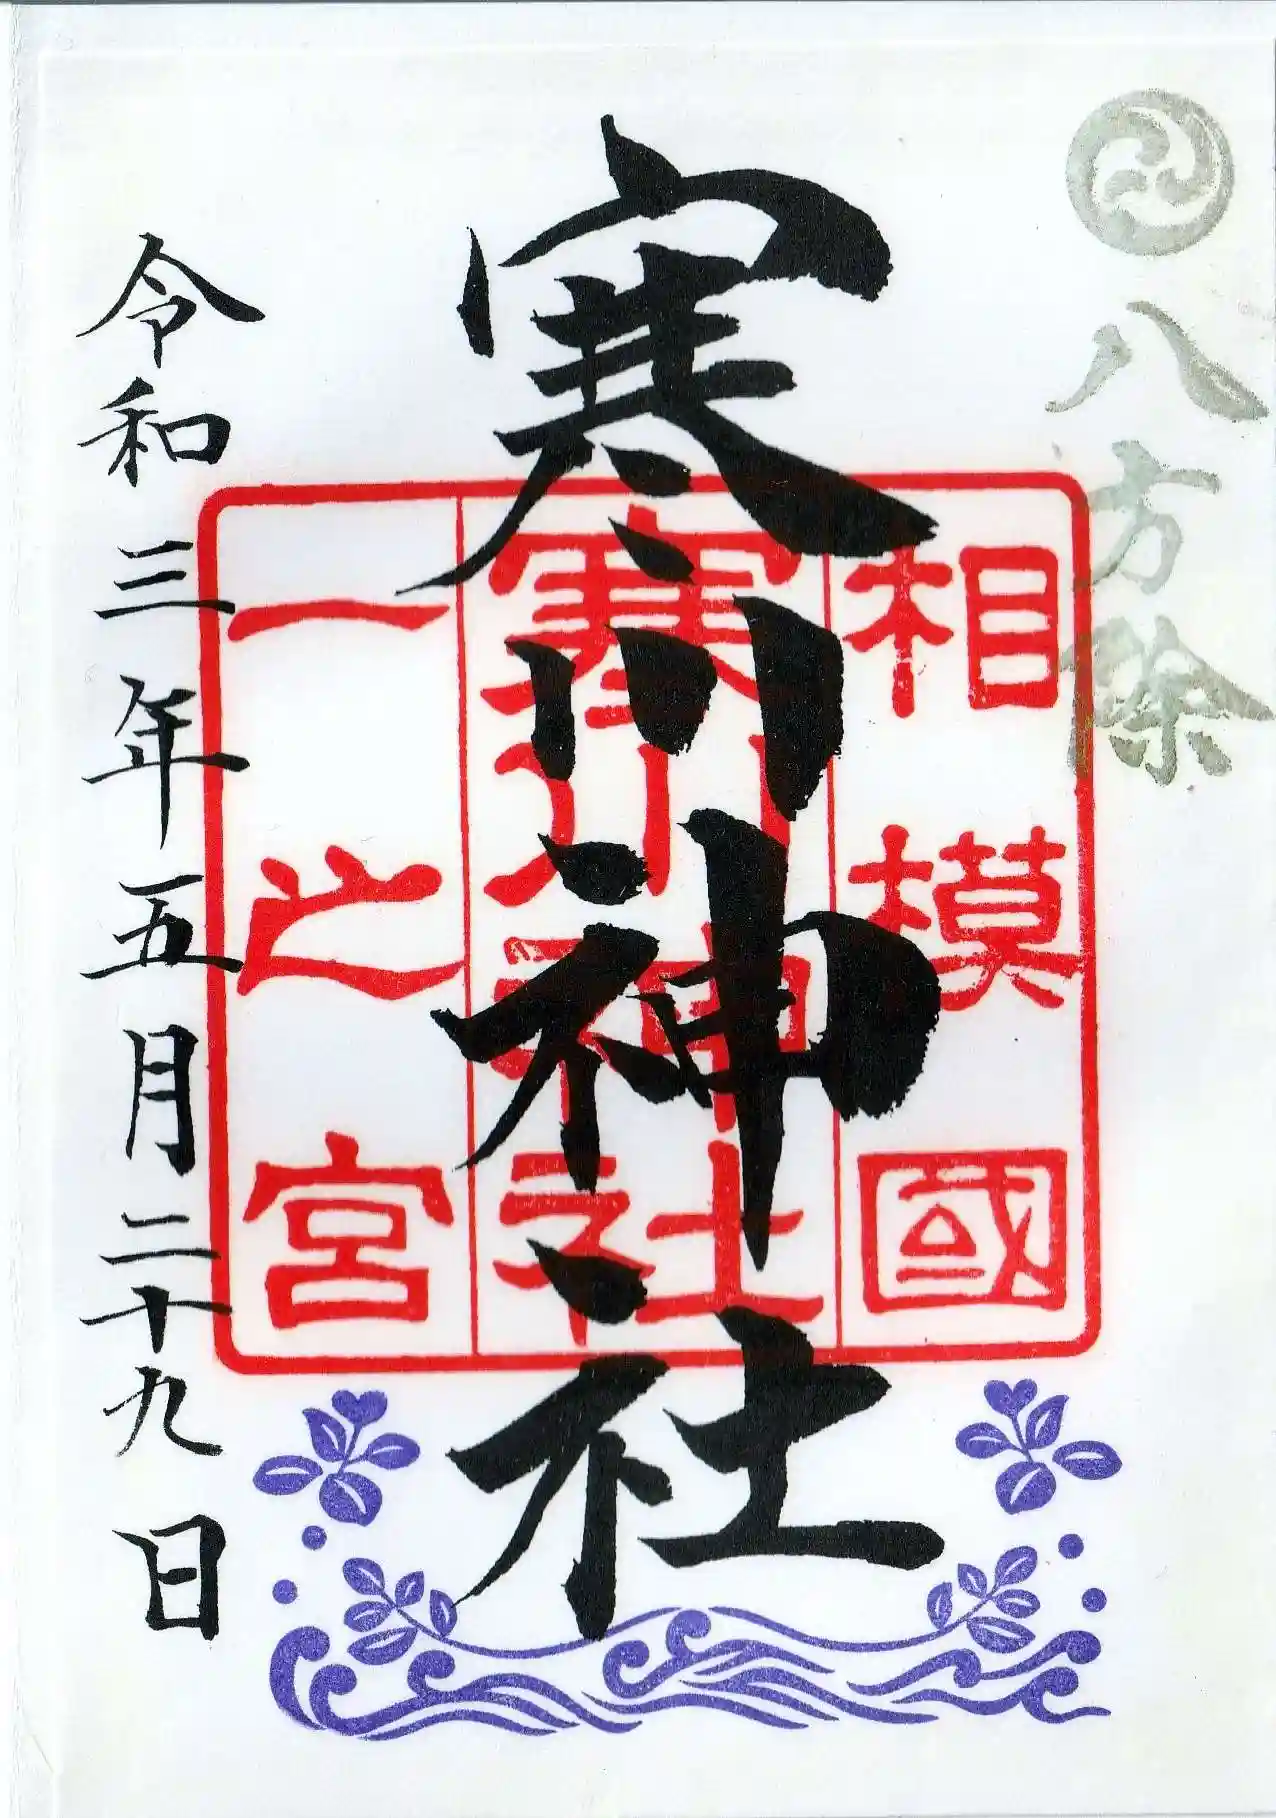 八方除
寒川神社
相模國
寒川神社
一之宮
令和三年五月二十九日